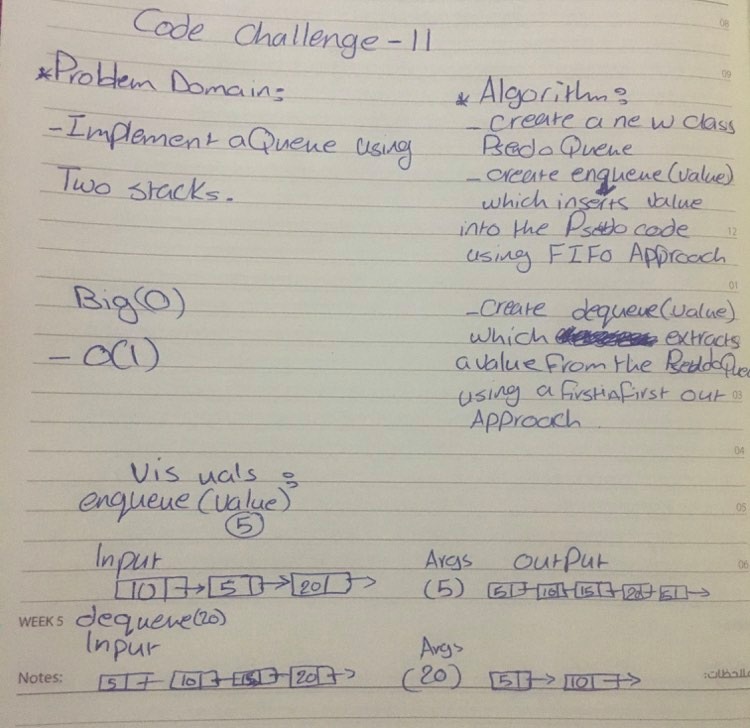 Code Challenge - 11
*Problem Domain:
- Implement a Queue using
Two stacks.
Big(O)
- O(1)
* Algorithm:
- Create a new class
Psedo Queue
- create enqueue(value)
which inserts value
into the Psedo code
using FIFO Approach
- Create dequeue(value)
which extracts
a value from the
using a first in first out
Approach.
Visuals:
enqueue(value)
5
Input Args Output
10 5 20 (5) 5 10 15 20 5
WEEK 5 dequeue(20)
Input Args
Notes: 5 10 15 20 (20) 5 10
ملاحظات:
08
09
12
01
03
04
05
06